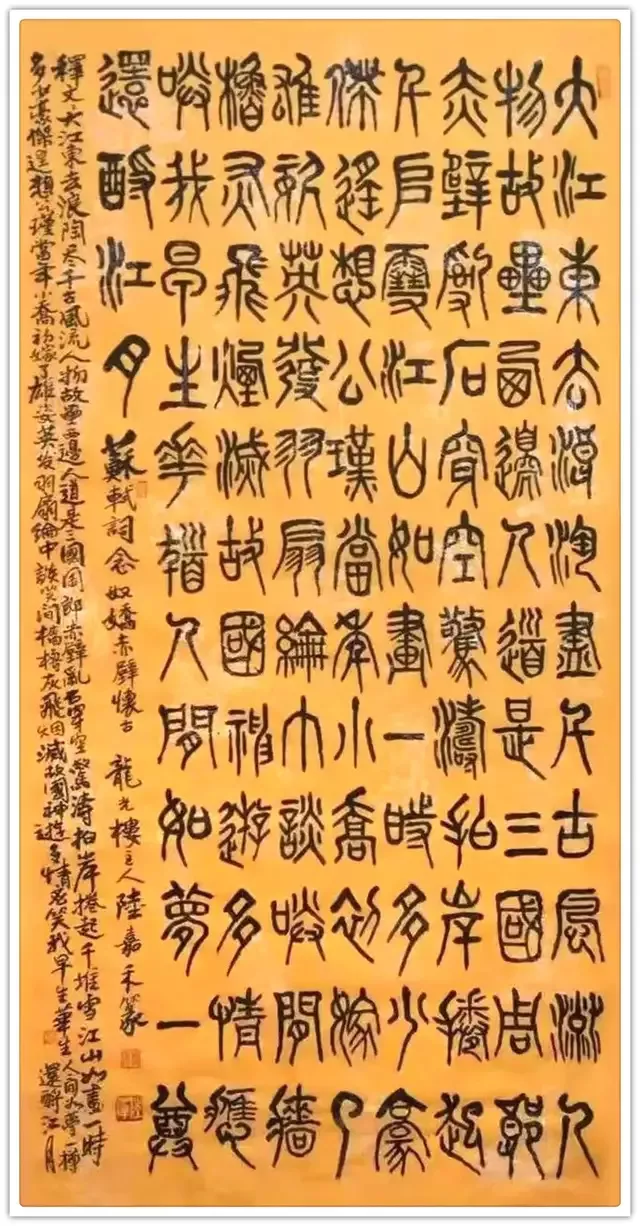 大江東去浪淘盡千古風流人
物故壘西邊人道是三國周郎
赤壁亂石穿空驚濤拍岸捲起
千堆雪江山如畫一時多少豪
傑遙想公瑾當年小喬初嫁了
雄姿英發羽扇綸巾談笑間檣
櫓灰飛煙滅故國神遊多情應
笑我早生華髮人間如夢一尊
還酹江月
蘇軾詞念奴嬌赤壁懷古 龍光樓主人陸嘉禾篆
釋文大江東去浪陶尽千古風流人物故壘西邊人道是三國周郎赤壁亂石穿空驚濤拍岸捲起千堆雪江山如畫一時
多少豪傑遙想公瑾當年小喬初嫁了雄姿英发羽扇綸巾談笑間檣櫓灰飛烟滅故國神遊多情笑我早生華人間如夢一樽還酹江月